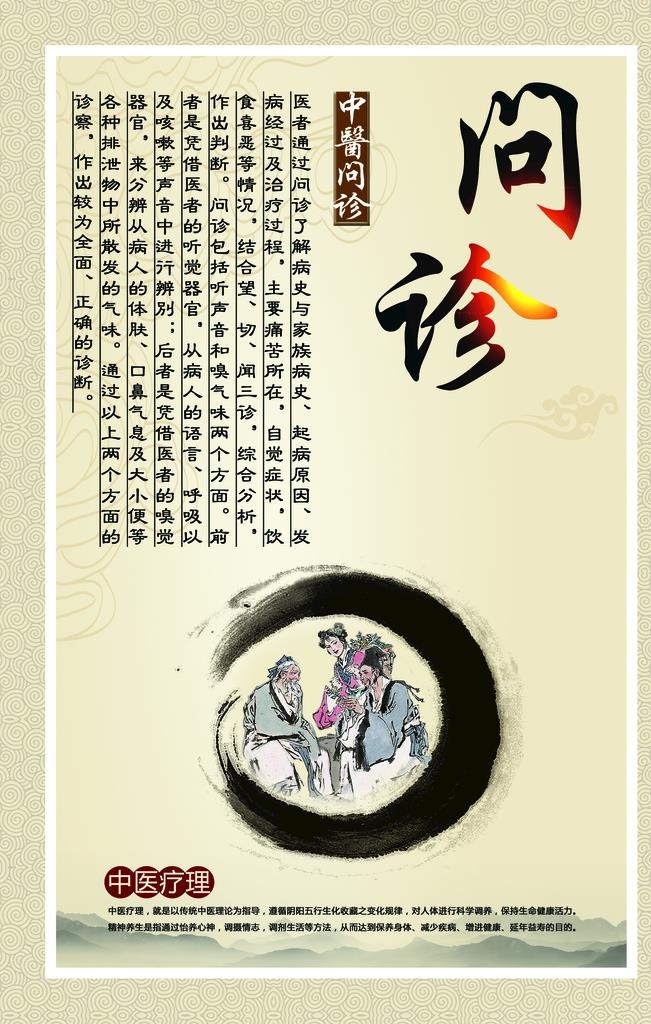 问诊
中醫问诊
医者通过问诊了解病史与家族病史、起病原因、发
病经过及治疗过程，主要痛苦所在，自觉症状，饮
食喜恶等情况，结合望、切、闻三诊，综合分析，
作出判断。问诊包括听声音和嗅气味两个方面。前
者是凭借医者的听觉器官，从病人的语言、呼吸以
及咳嗽等声音中进行辨别；后者是凭借医者的嗅觉
器官，来分辨从病人的体肤、口鼻气息及大小便等
各种排泄物中所散发的气味。通过以上两个方面的
诊察，作出较为全面、正确的诊断。
中医疗理
中医疗理，就是以传统中医理论为指导，遵循阴阳五行生化收藏之变化规律，对人体进行科学调养，保持生命健康活力。
精神养生是指通过怡养心神，调摄情志，调剂生活等方法，从而达到保养身体、减少疾病、增进健康、延年益寿的目的。